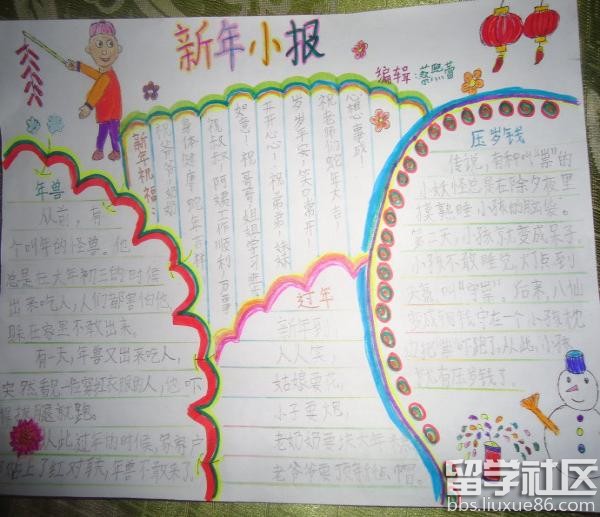 新年小报
编辑:蔡熙蕾
年兽
从前,有
个叫年的怪兽。他
总是在大年初三的时候
出来吃人,人们都害怕他,
躲在家里不敢出来。
有一天,年兽又出来吃人,
突然看见一位穿红衣服的人,他吓
得拔腿就跑。
从此过年的时候,家家户户
贴上了红对联,年兽不敢来了。
新年祝福:
祝爷爷奶奶
身体健康,蛇年吉祥
祝叔叔、阿姨工作顺利,万事
如意!祝哥哥、姐姐学习进步
开开心心!祝弟弟、妹妹
岁岁平安,笑口常开!
祝老师们蛇年大吉!
心想事成!
过年
新年到,
人人笑,
姑娘要花,
小子要炮,
老奶奶要块大年糕
老爷爷要顶新毡帽。
压岁钱
传说,有种叫“祟”的
小妖怪总是在除夕夜里
摸熟睡小孩的脑袋。
第二天,小孩就变成呆子。
小孩不敢睡觉,灯点到
天亮叫“守祟”。后来,八仙
变成铜钱守在一个小孩枕
边把祟吓跑了。从此,小孩
就有压岁钱了。
留学社区
bbs.liuxue86.com